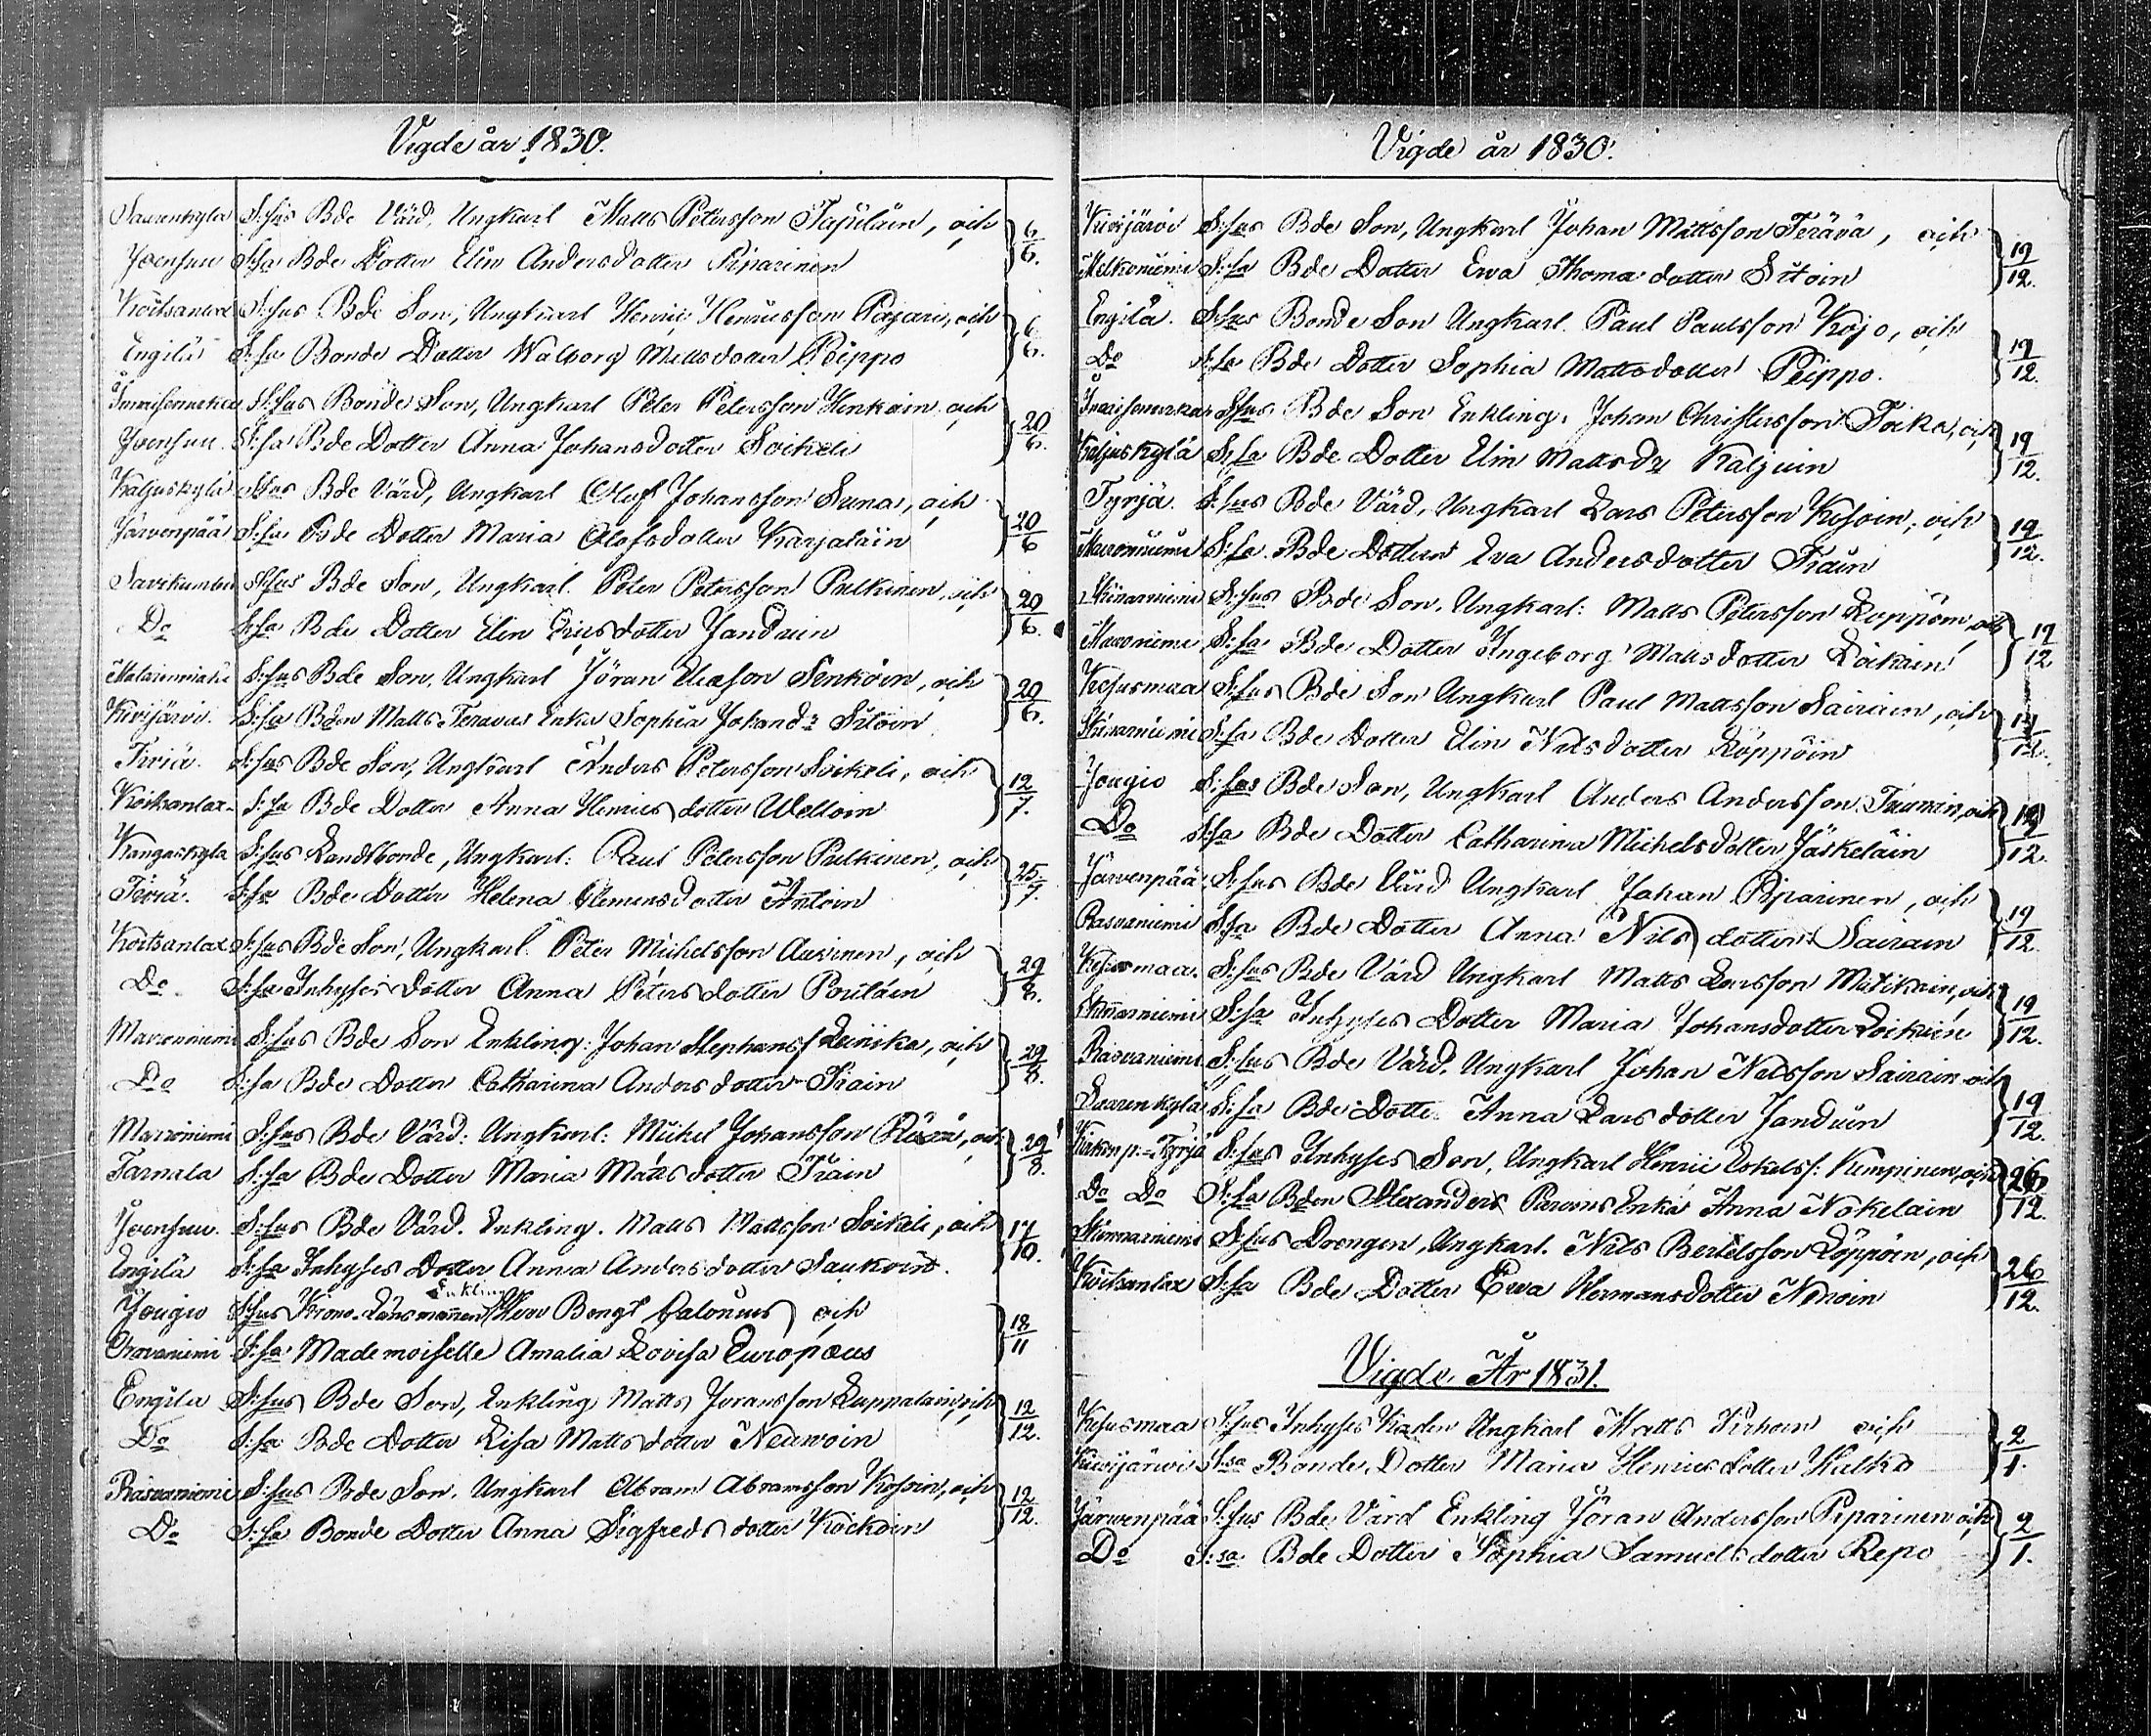 Vigde år 1830.
Saarenkylä S:sus Bde Värd, Ungkarl Matts Petersson Tasulain, och 6/6.
Joensuu S:sa Bde Dotter Elin Andersdotter Piparinen
Koitsanlax S:sus Bde Son, Ungkarl Henric Henricsson Pajari, och 6/6.
Engilä S:sa Bonde Dotter Walborg Mattsdotter Peippo
S:sus Bonde Son, Ungkarl Peter Petersson Henkoin, och 20/6.
Joensuu. S:sa Bde Dotter Anna Johansdotter Soikeli
Kaljuskylä S:sus Bde Värd, Ungkarl Olof Johansson Suna, och 20/6
Järvenpää S:sa Bde Dotter Maria Olofsdotter Karjalain
Savikumbu S:sus Bde Son, Ungkarl. Peter Petersson Pulkinen, och 20/6.
Do S:sa Bde Dotter Elin Ericsdotter Janduin
S:sus Bde Son, Ungkarl Jöran Eliasson Senkoin, och 20/6.
Kivijärvi. S:sa Bden Matts Teravas Enka Sophia Johansdr Sitoin
Tiviä. S:sus Bde Son, Ungkarl Anders Petersson Soikeli, och 12/7.
Koitsanlax. S:sa Bde Dotter Anna Henricsdotter Weltoin
Kangaskylä S:sus Landbonde, Ungkarl: Paul Petersson Pulkinen, och 25/7.
Tiviä. S:sa Bde Dotter Helena Clemensdotter Antoin
Koitsanlax S:sus Bde Son, Ungkarl. Peter Michelsson Auvinen, och 29/8.
Do S:sa Inhyses Dotter Anna Petersdotter Poutiain
Marroniemi S:sus Bde Son Enkling: Johan Stephanss Leinika, och 29/8.
Do S:sa Bde Dotter Catharina Andersdotter Träin
Marroniemi S:sus Bde Värd: Ungkarl: Michel Johansson Räsä, och 29/8.
Tarnala S:sa Bde Dotter Maria Mattsdotter Träin
Joensuu. S:sus Bde Värd. Enkling. Matts Mattsson Soikeli, och 17/10.
Engilä S:sa Inhyses Dotter Anna Andersdotter Saukoin.
Enkling
Jougio S:sus Krono-Länsmannen Herr Bengt Calonius och 18/11
Oravaniemi S:sa Mademoiselle Amalia Lovisa Europæus
Engilä S:sus Bde Son, Enkling Matts Joransson Lappalain, och 12/12.
Do S:sa Bde Dotter Lisa Mattsdotter Neuvoin
Räsvaniemi S:sus Bde Son, Ungkarl Abram Abramsson Kossoin, och 12/12.
Do S:sa Bonde Dotter Anna Sigfredsdotter Kockoin
Vigde år 1830.
Kivijärvi S:sus Bde Son, Ungkarl Johan Mattsson Terävä, och 19/12.
Melkoniemi S:sa Bde Dotter Ewa Thomadotter Sitoin
Engilä. S:sus Bonde Son Ungkarl. Paul Paulsson Kojo, och 19/12.
Do S:sa Bde Dotter Sophia Mattsdotter Peippo.
S:sus Bde Son Enkling, Johan Christersson Toika, och 19/12.
Kaljuskylä S:sa Bde Dotter Elin Mattsdr Kaljuin
Tyrjä. S:sus Bde Värd, Ungkarl Lars Petersson Kosoin, och 19/12.
Marroniemi S:sa Bde Dottern Eva Andersdotter Träin
Skinnarniemi S:sus Bde Son, Ungkarl: Matts Petersson Loppöin, och 19/12
Marroniemi S:sa Bde Dotter Ingeborg Mattsdotter Loikain
Kesusmaa S:sus Bde Son Ungkarl Paul Mattsson Sairain, och 19/12.
Skinnarniemi S:sa Bde Dotter Elin Nilsdotter Löppöin
Jougio S:sus Bde Son, Ungkarl Anders Andersson Tiainen, och 19/12.
Do S:sa Bde Dotter Catharina Michelsdotter Jäskeläin
Järvenpää S:sus Bde Värd Ungkarl Johan Piparinen, och 19/12.
Räsvaniemi S:sa Bde Dotter Anna Nilsdotter Sairain
Kesusmaa. S:sus Bde Värd Ungkarl Matts Larsson Matikain, och 19/12.
Skinnarniemi S:sa Inhyses Dotter Maria Johansdotter Loikain
Räsvaniemi S:sus Bde Värd, Ungkarl Johan Nilsson Sairain och 19/12.
Saarenkylä S:sa Bde Dotter Anna Larsdotter Janduin
Tyrjä S:sus Inhyses Son, Ungkarl Henric Eskelss: Kumpinen, och 26/12.
Do Do S:sa Bden Alexanders Enka Anna Nokelain
Skinnarniemi S:sus Drengen, Ungkarl. Nils Bertelsson Löppöin, och 26/12.
Koitsanlax S:sa Bde Dotter Ewa Hermansdotter Nenoin
Vigde År 1831.
Kesusmaa S:sus Inhyses Karlen Ungkarl Matts Hirhoin och 2/1.
Kiivijärvi S:sa Bonde Dotter Maria Henricsdotter Kulko
Järwenpää S:sus Bde Värd Enkling Jöran Andersson Piparinen och 2/1.
Do S:sa Bde Dotter Sophia Samuelsdotter Repo